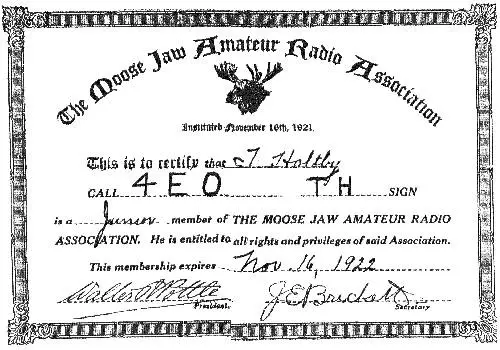 The Moose Jaw Amateur Radio Association
Instituted November 16th, 1921.
This is to certify that T Holtby
CALL 4EO TH SIGN
is a Junior member of THE MOOSE JAW AMATEUR RADIO
ASSOCIATION. He is entitled to all rights and privileges of said Association.
This membership expires Nov 16, 1922
Walter
President. Secretary